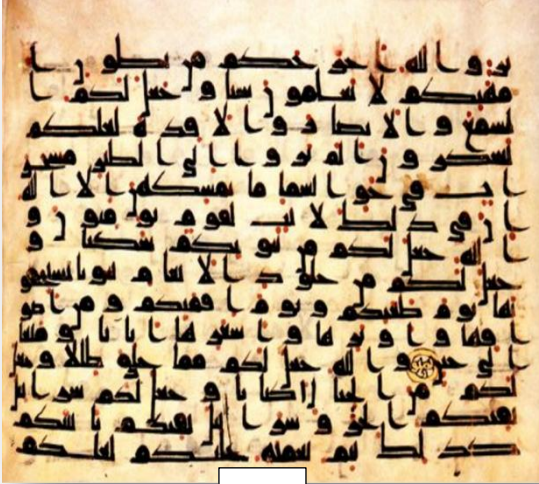 ير والله اخرجكم من بطون ا
مهتكم لا تعلمون شيا وجعل لكم ا
لسمع والابصار والافدة لعلكم
تشكرون الم يروا الى الطير مسخر
ات في جو السما ما يمسكهن الا الله
ان في ذلك لايت لقوم يومنون و
الله جعل لكم من بيوتكم سكنا و
جعل لكم من جلود الانعام بيوتا تستخفو
نها يوم ظعنكم ويوم اقمتكم ومن اصو
افها واوبارها واشعرها اثاثا ومتعا
الى حين والله جعل لكم مما خلق ظللا وجعل
لكم من الجبال اكنانا وجعل لكم سرابيل
تقيكم الحر وسرابيل تقيكم باسكم
كذلك يتم نعمته عليكم لعلكم